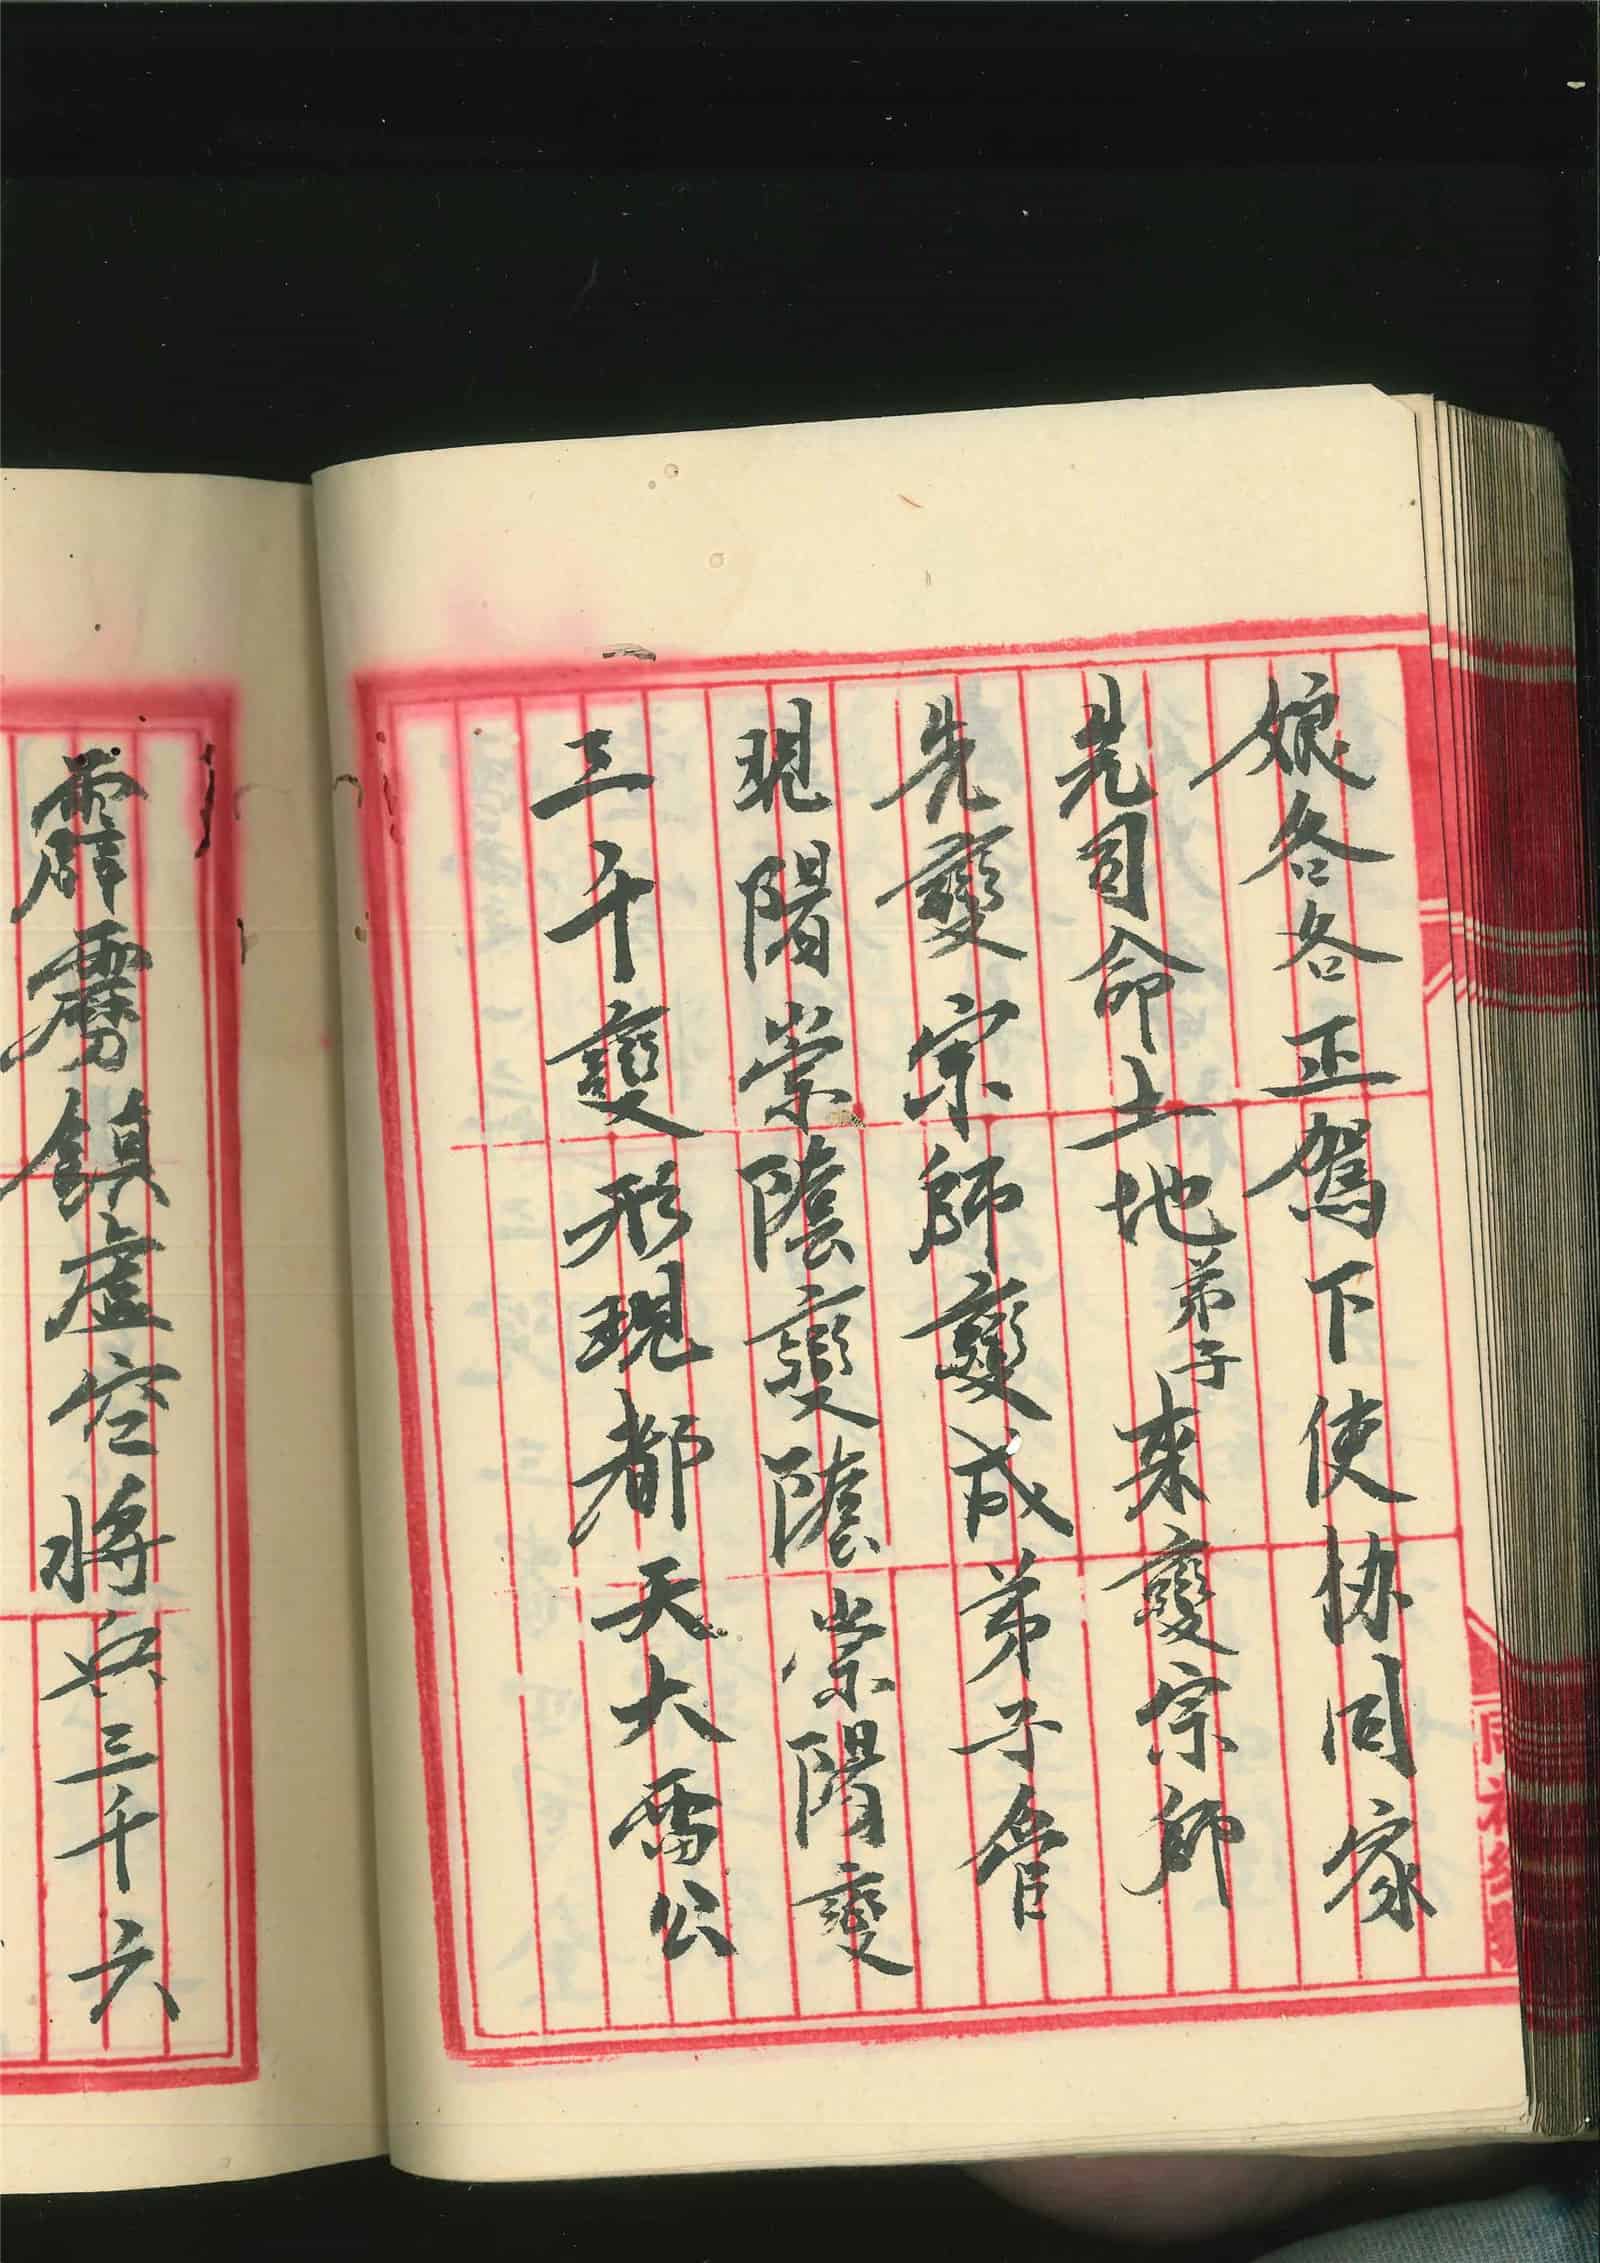 娘各各正駕下使協同家
先司命土地弟子來變宗師
先變宗師變成弟子管
現陽崇陰變陰崇陽變
三千變形現都天大雷公
霹靂鎮虛空將兵三千六